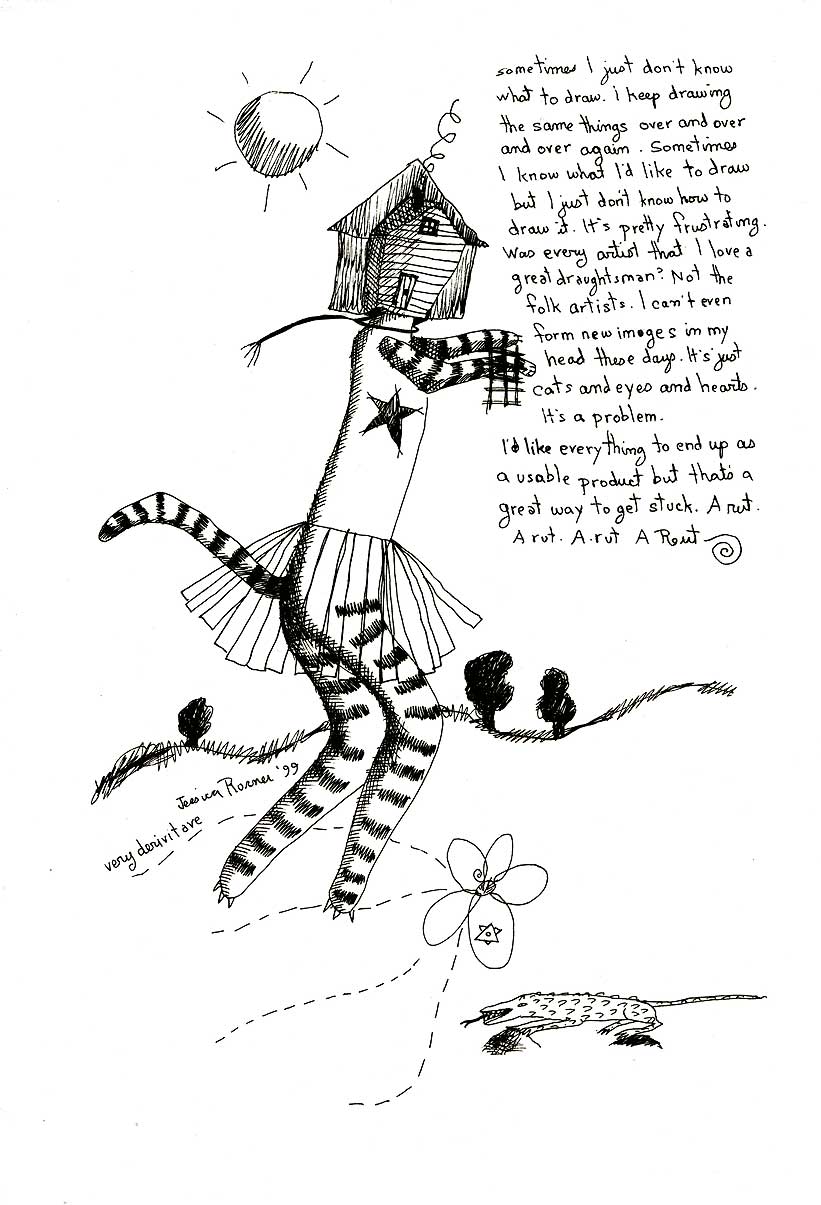 sometimes I just don't know
what to draw. I keep drawing
the same things over and over
and over again. Sometimes
I know what I'd like to draw
but I just don't know how to
draw it. It's pretty frustrating.
Was every artist that I love a
great draughtsman? Not the
folk artists. I can't even
form new images in my
head these days. It's just
cats and eyes and hearts.
It's a problem.
I'd like everything to end up as
a usable product but that's a
great way to get stuck. A rut.
A rut. A rut A Rout
Jessica Rosner '99
very derivitave